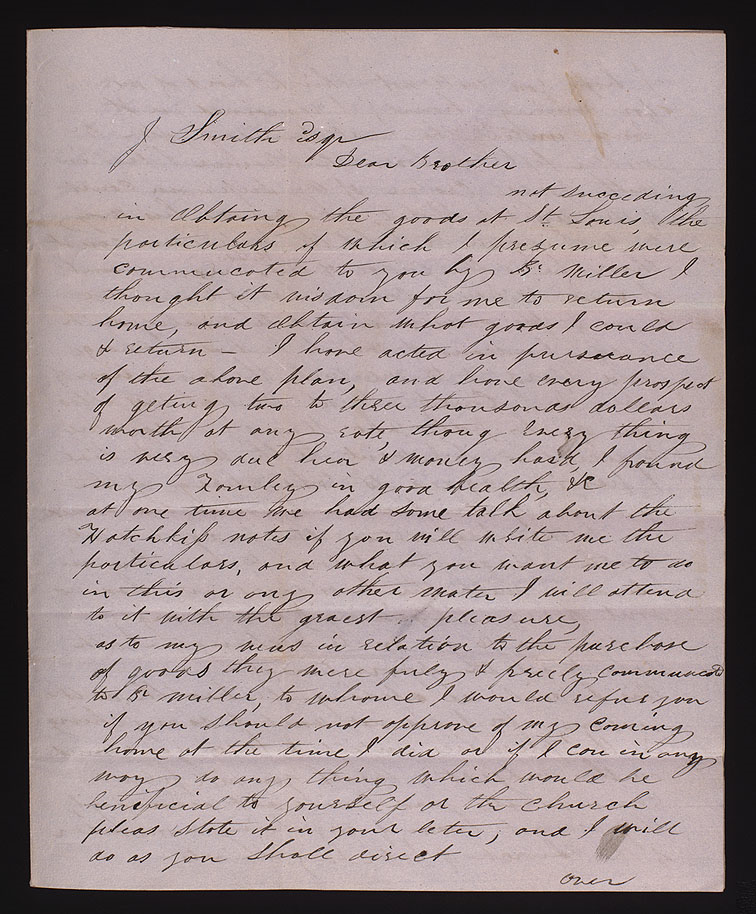 J Smith Esqr
Dear Brother
not succeding
in Obtaing the goods at St. Louis, the
particulars of which I presume were
commucated to you by Br Miller I
thought it wisdom for me to return
home, and Obtain what goods I could
& return – I have acted in pursuance
of the above plan, and have every prospect
of geting two to three thousands dollars
worth at any rate, thoug Every thing
is very dul hear & money hard, I found
my Famley in good health, &c
at one time we had some talk about the
Hotchkiss notes if you will write me the
particulars, and what you want me to do
in this or any other mater I will attend
to it with the graest pleasure,
as to my views in relation to the purchase
of goods they were fuly & freely communcatd
to Br Miller, to whome I would refur you
if you should not approve of my coming
home at the time I did or if I can in any
way do any thing which would be
benificial to yourself or the Church
pleas state it in your leter, and I will
do as you shall direct
over